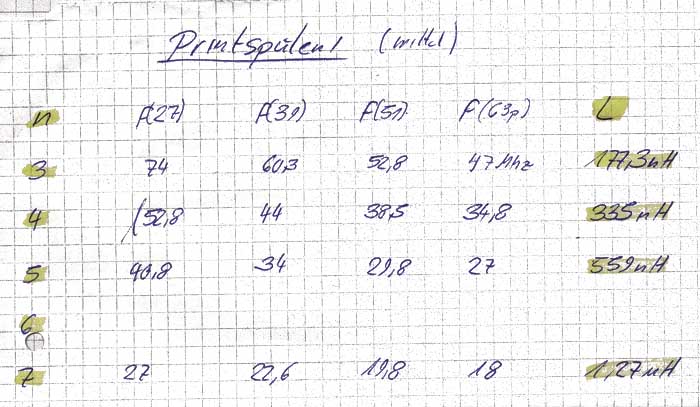 Printspulen! (mittel)
n f(27) f(39) f(51) f(63p) L
3 74 60,3 52,8 47 Mhz 177,3nH
4 (52,8 44 38,5 34,8 335nH
5 40,8 34 29,8 27 559nH
6
7 27 22,6 19,8 18 1,27uH